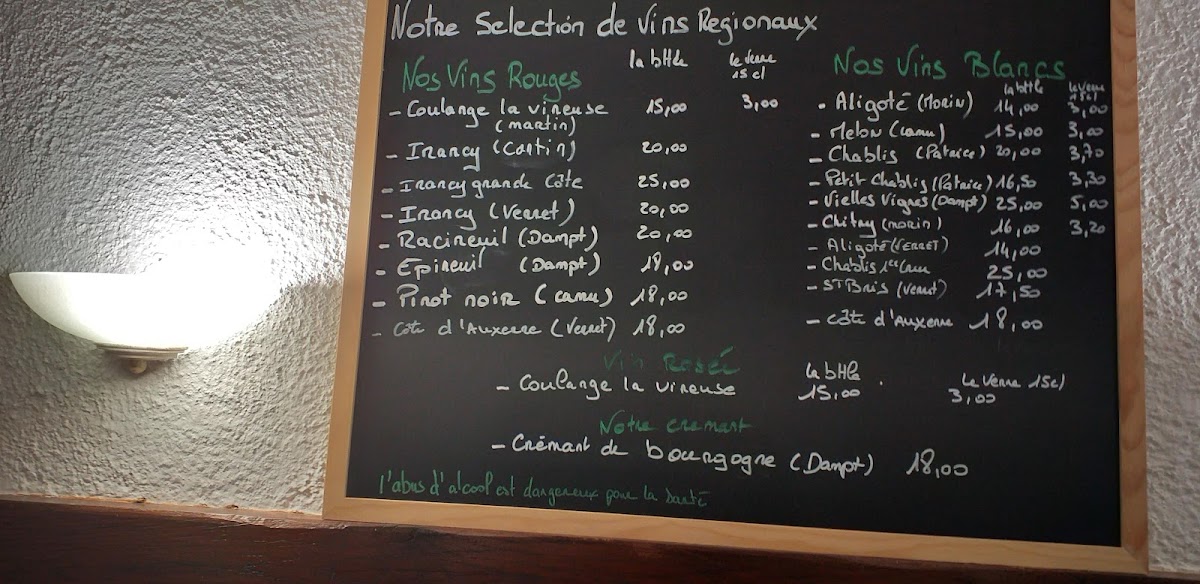 Notre Selection de Vins Regionaux
Nos Vins Rouges la btlle le verre
15 cl
- Coulange la vineuse 15,00 3,00
(martin)
- Irancy (Cantin) 20,00
- Irancy grande Côte 25,00
- Irancy (Verret) 20,00
- Racineuil (Dampt) 20,00
- Epineuil (Dampt) 18,00
- Pinot noir (camu) 18,00
- Côte d'Auxerre (Verret) 18,00
Nos Vins Blancs
la btlle le verre
15cl
- Aligoté (Morin) 14,00 3,00
- Melon (camu) 15,00 3,00
- Chablis (Patrice) 20,00 3,70
- Petit Chablis (Patrice) 16,50 3,30
- Vielles Vignes (Dampt) 25,00 5,00
- Chitry (morin) 16,00 3,20
- Aligoté (VERRET) 14,00
- Chablis 1er Cru 25,00
- St Bris (Verret) 17,50
- Côte d'Auxerre 18,00
Vin Rosé
la btlle Le Verre 15cl
- Coulange la vineuse 15,00 3,00
Notre cremant
- Crémant de bourgogne (Dampt) 18,00
l'abus d'alcool est dangereux pour la santé